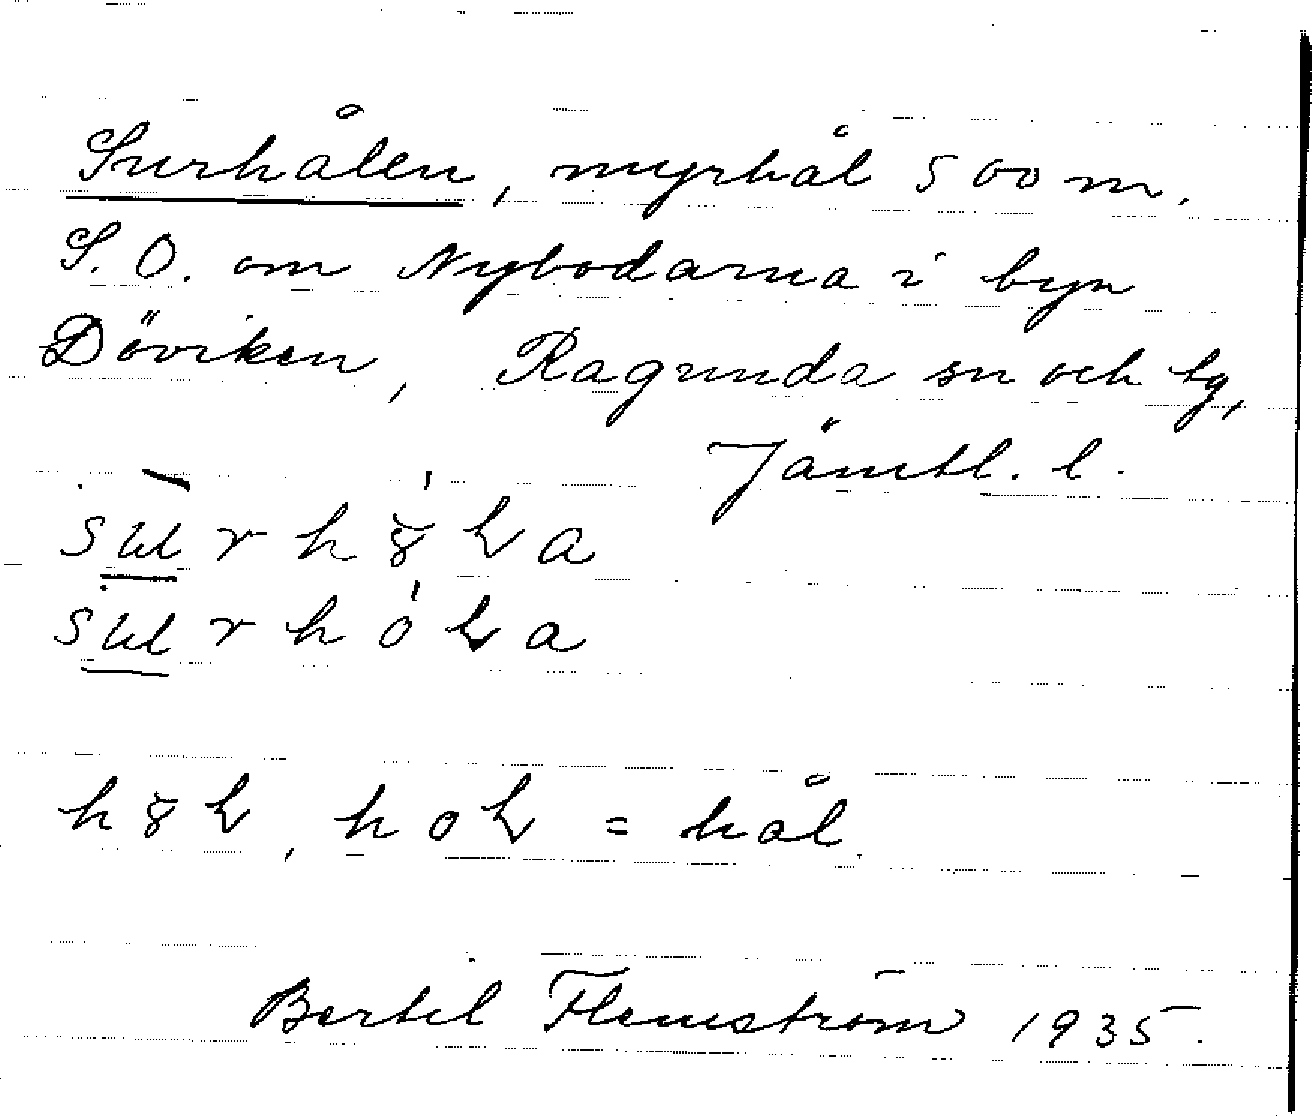 Surhålen, myrhål 500 m.
S.O. om Nybodarna i byn
Döviken, Ragunda sn och tg,
Jämtl. l.
hål
Bertil Flemström 1935.